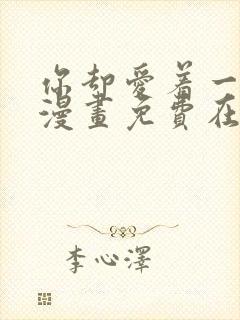 你却愛着一
漫畫免費在
李心澤